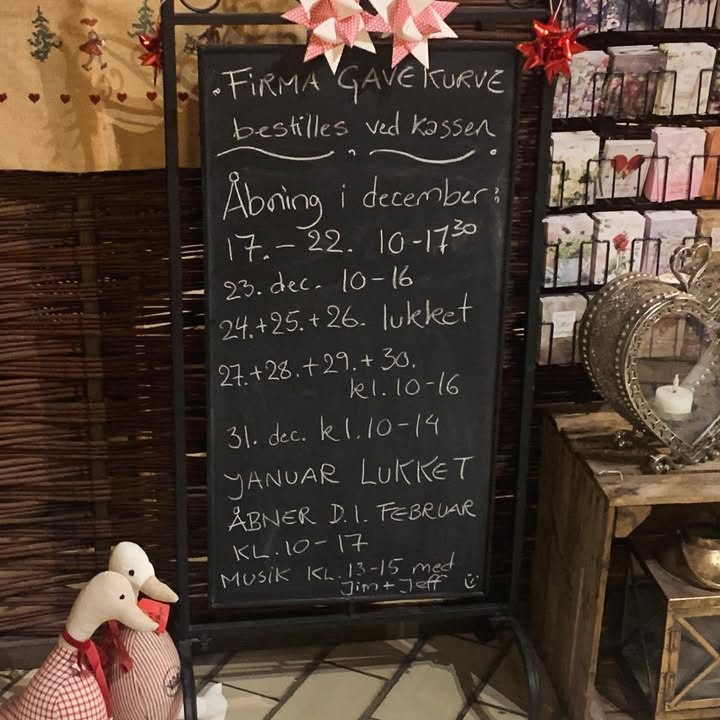 FIRMA GAVEKURVE
bestilles ved kassen
Åbning i december:
17. – 22. 10 -17³⁰
23. dec. 10 – 16
24.+25.+26. lukket
27.+28.+29.+30.
kl. 10 -16
31. dec. kl. 10 – 14
JANUAR LUKKET
ÅBNER D. 1. FEBRUAR
KL. 10 – 17
MUSIK KL. 13-15 med
Jim + Jeff ☺